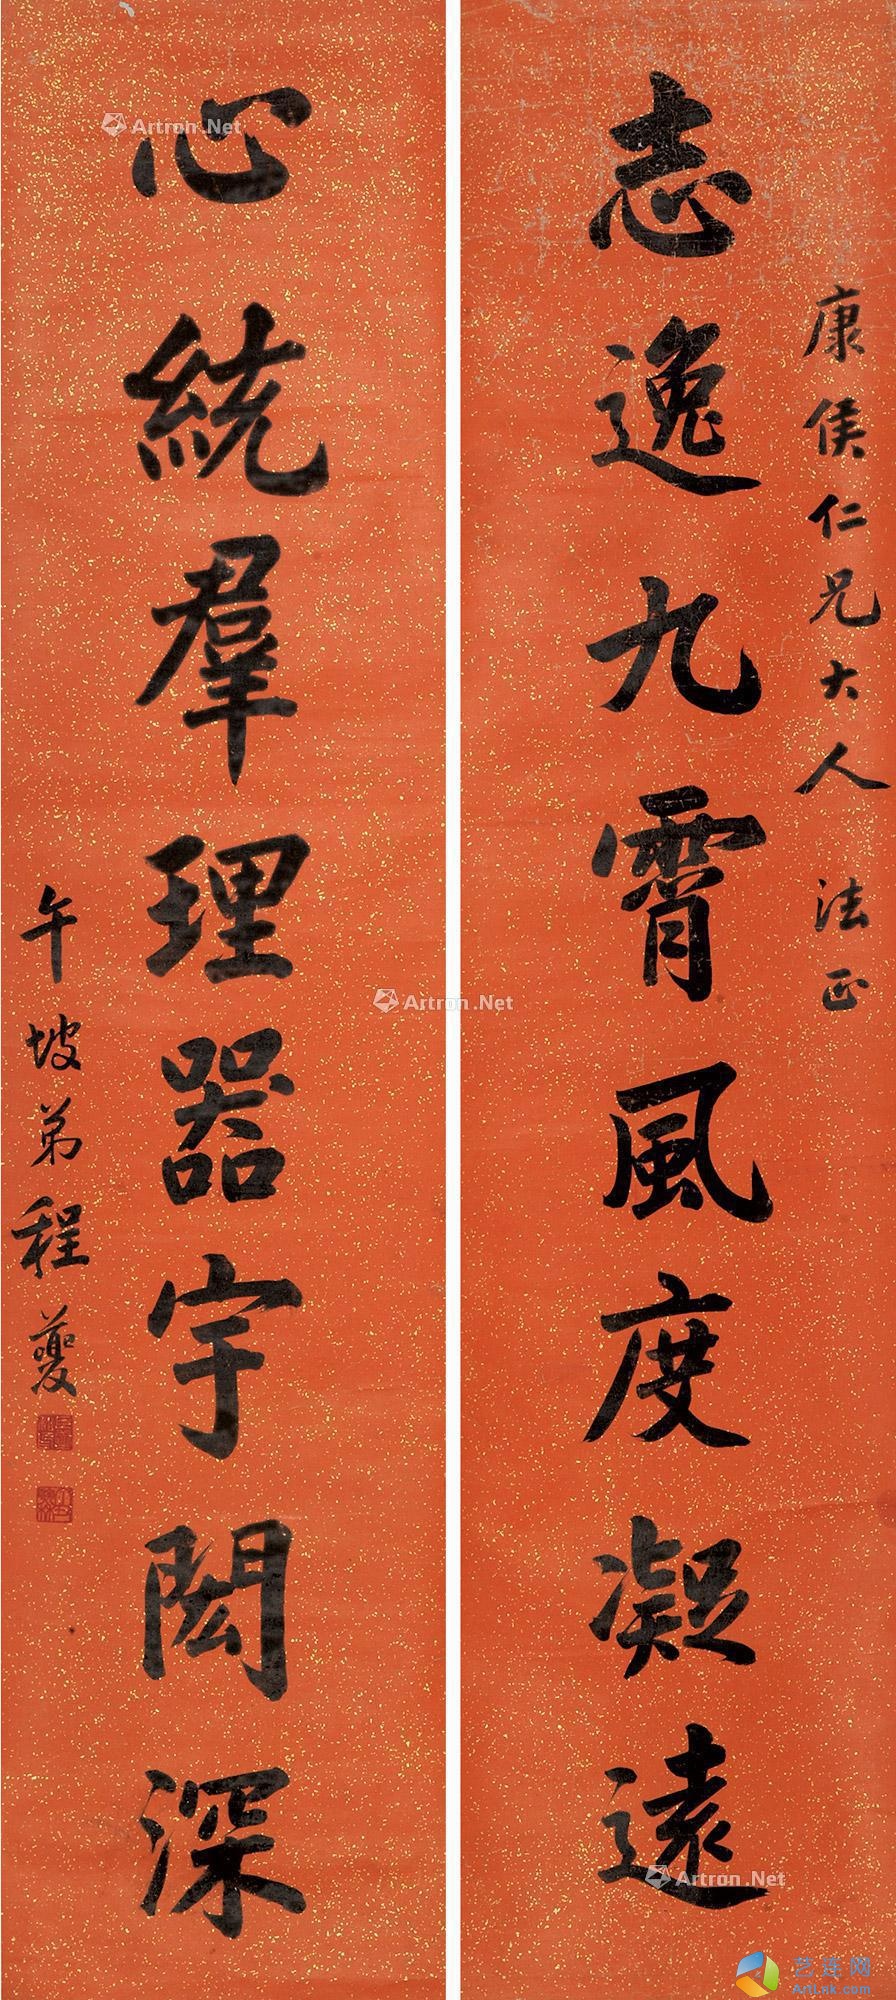 康侯仁兄大人 法正
志逸九霄風度凝遠
心統羣理器宇閎深
午坡弟程夔
Artron.Net
Artron.Net
Artron.Net
艺连网
ArtLnk.com